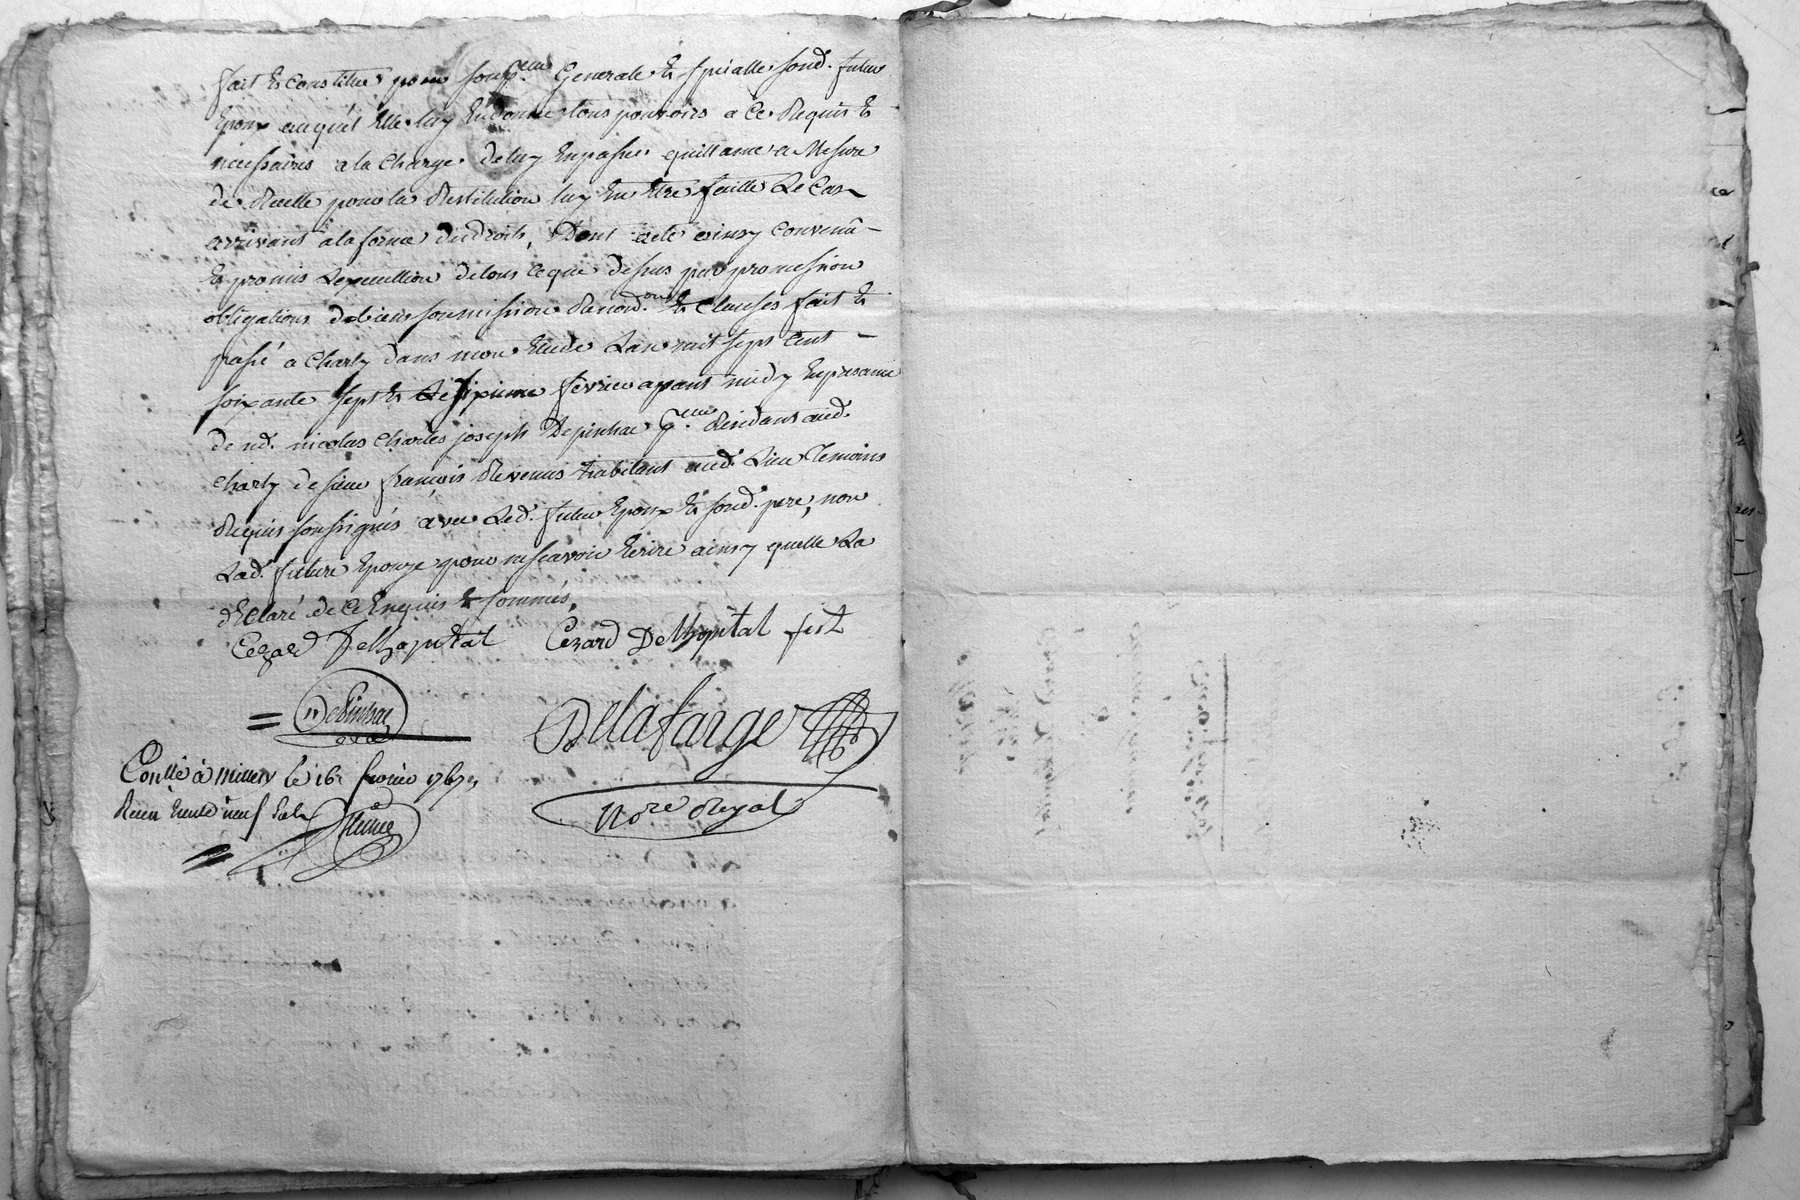 fait & constitué pour son p.reur General & special sond. futur
Epoux auquel Elle luy En donne tous pouvoirs a ce Requis &
necessaires a la charge de luy En passer quittance a Mesure
de Recette pour la Restitution luy En Etre faitte Le Cas
arrivant a la forme du droit, Dont acte ainsy convenû
& promis L'execution de tous ce que dessus par promession
obligations de biens soumission Renond.on & clauses fait &
passé a Charly dans mon Etude L'an mil sept cent
soixante sept & Le sixieme fevrier avant midy En presence
de nd. nicolas charles joseph Depinhac p.reur Residant aud.
charly de sieur françois Revenus habitant aud. Lieu Temoins
Requis soussignés avec Led. futur Epoux & sond. pere, non
Lad. future Epouze pour ne scavoir Ecrire ainsy quelle La
dEclaré de ce Enquis & sommés,
Cezard Delhopital Cezard Delhopital fist
Depinhac
Delafarge
Conllé à millery le 16e fevrier 1767
Nore Royal
Receu trente neuf sols